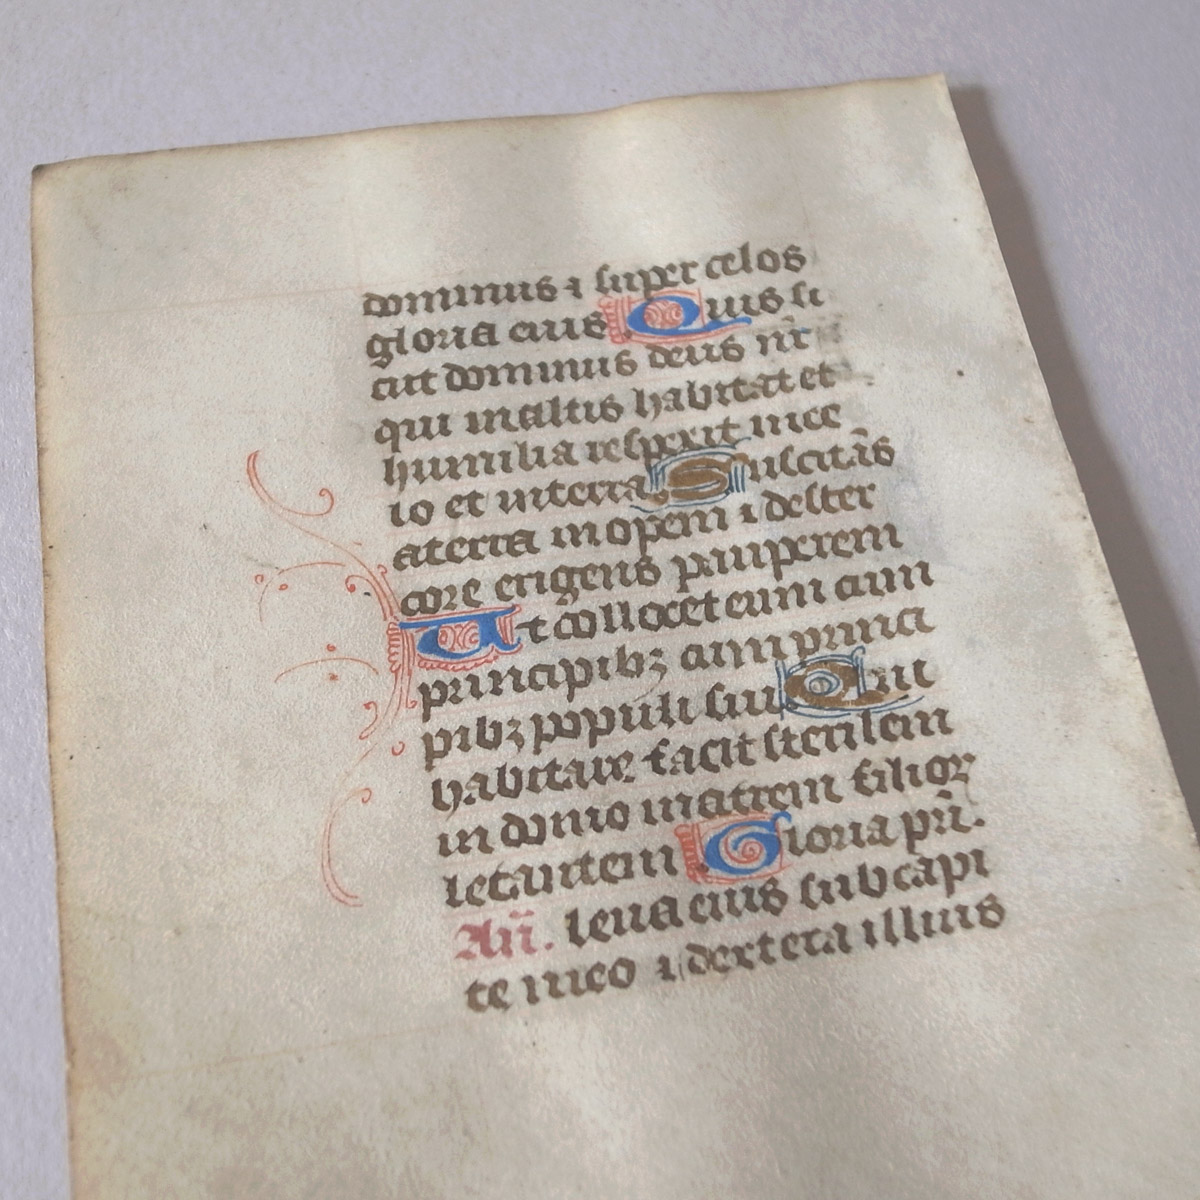 dominus ⁊ super celos
gloria eius. Quis si
cut dominus deus nr̄
qui in altis habitat et
humilia respexit in ce
lo et in terra. Suscitās
a terra inopem ⁊ de ster
core erigens pauperem
Ut collocet eum cum
principibꝫ cum princi
pibꝫ populi sui. Qui
habitare facit sterilem
in domo matrem filioꝝ
letantem. Gloria pr̄i.
An̄. leua eius sub capi
te meo ⁊ dextera illius